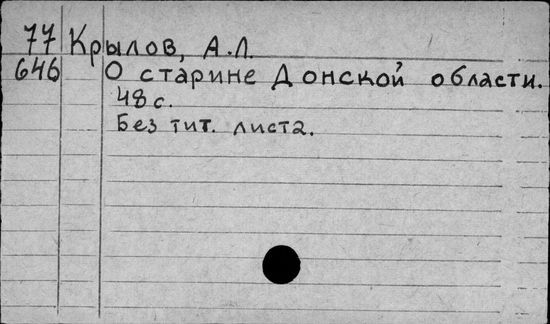 77 Крылов, А.Л.
646 О старине Донской области.
48 с.
Без тит. листа.